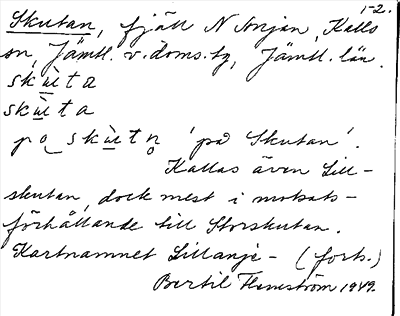 1-2.
Skutan, fjäll N Anjan, Kalls
sn, Jämtl. v. doms. tg, Jämtl. län.
skùta
skùta
pọ skùtn̥ 'på Skutan'.
Kallas även Lill-
skutan, dock mest i motsats-
förhållande till Storskutan.
Kartnamnet Lillanje- (forts.)
Bertil Flemström 1949.